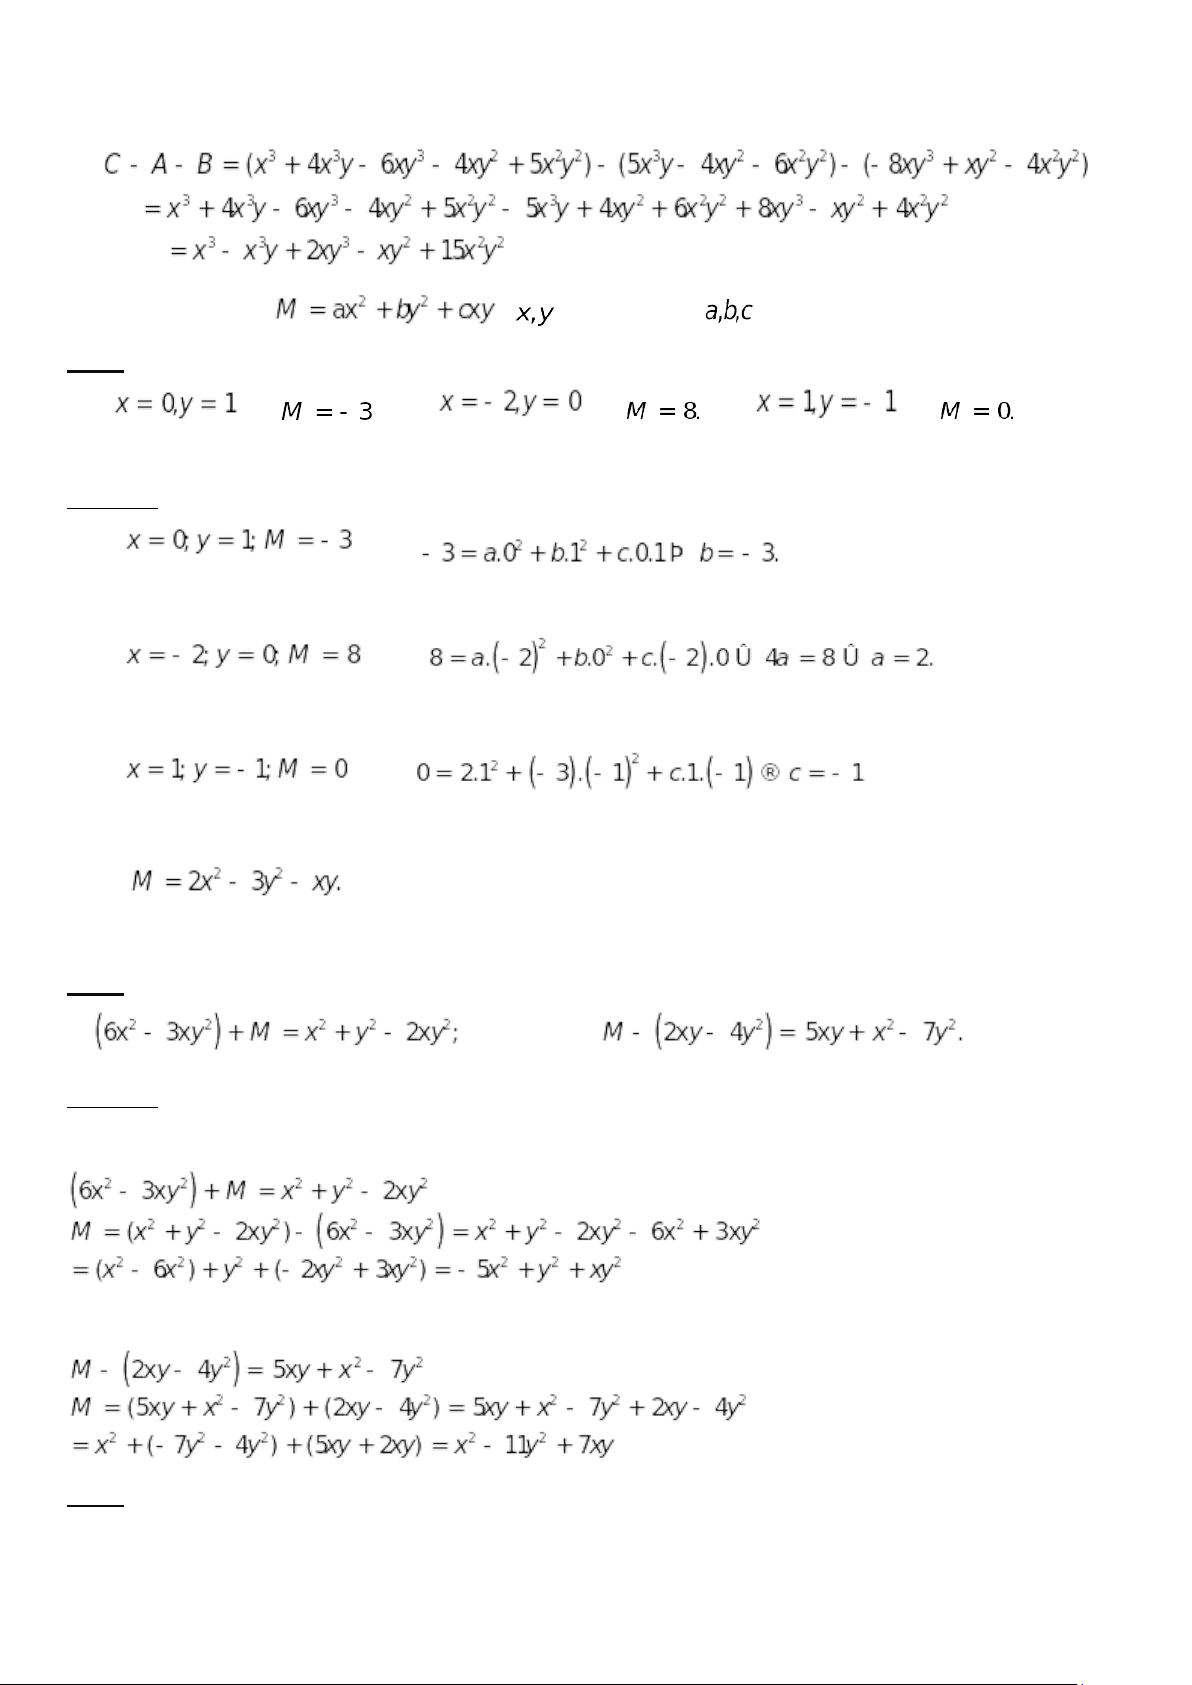 C - A - B = (x³ + 4x³y - 6xy³ - 4xy² + 5x²y²) - (5x³y - 4xy² - 6x²y²) - (- 8xy³ + xy² - 4x²y²)
= x³ + 4x³y - 6xy³ - 4xy² + 5x²y² - 5x³y + 4xy² + 6x²y² + 8xy³ - xy² + 4x²y²
= x³ - x³y + 2xy³ - xy² + 15x²y²
M = ax² + by² + cxy x, y a,b,c
x = 0,y = 1 M = - 3 x = - 2,y = 0 M = 8. x = 1,y = - 1 M = 0.
x = 0; y = 1; M = - 3 - 3 = a.0² + b.1² + c.0.1 Þ b = - 3.
x = - 2; y = 0; M = 8 8 = a.(- 2)² + b.0² + c.(- 2).0 Û 4a = 8 Û a = 2.
x = 1; y = - 1; M = 0 0 = 2.1² + (- 3).(- 1)² + c.1.(- 1) ® c = - 1
M = 2x² - 3y² - xy.
(6x² - 3xy²) + M = x² + y² - 2xy²; M - (2xy - 4y²) = 5xy + x² - 7y².
(6x² - 3xy²) + M = x² + y² - 2xy²
M = (x² + y² - 2xy²) - (6x² - 3xy²) = x² + y² - 2xy² - 6x² + 3xy²
= (x² - 6x²) + y² + (- 2xy² + 3xy²) = - 5x² + y² + xy²
M - (2xy - 4y²) = 5xy + x² - 7y²
M = (5xy + x² - 7y²) + (2xy - 4y²) = 5xy + x² - 7y² + 2xy - 4y²
= x² + (- 7y² - 4y²) + (5xy + 2xy) = x² - 11y² + 7xy